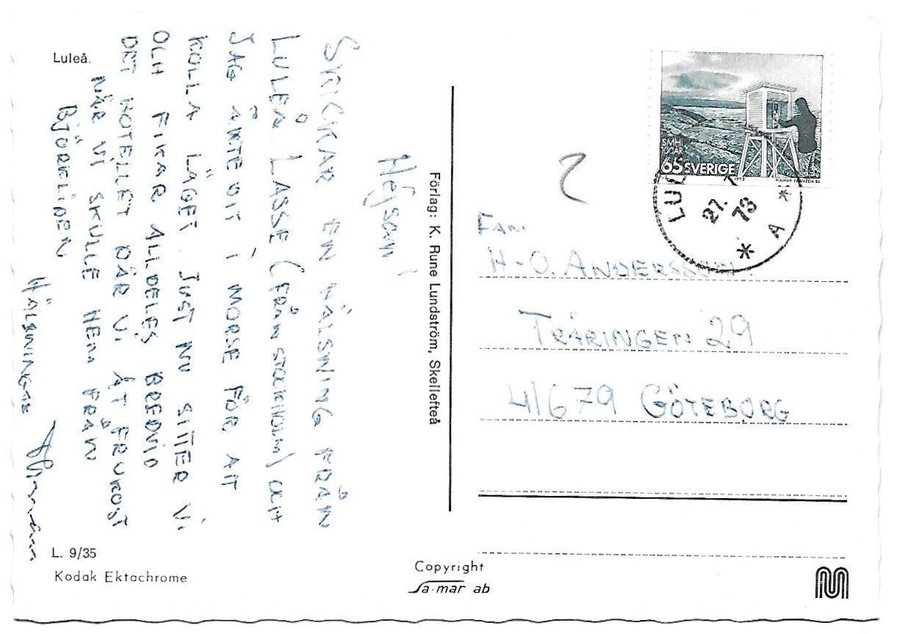 Luleå.
Hejsan!
SKICKAR EN HÄLSNING FRÅN
LULEÅ. LASSE (FRÅN STOCKHOLM) OCH
JAG ÅKTE DIT I MORSE FÖR ATT
KOLLA LÄGET. JUST NU SITTER VI
OCH FIKAR ALLDELES BREDVID
DET HOTELLET DÄR VI ÅT FRUKOST
NÄR VI SKULLE HEM FRÅN
BJÖRKLIDEN
HÄLSNINGAR
L. 9/35
Kodak Ektachrome
Förlag: K. Rune Lundström, Skellefteå
Copyright
Sa-mar ab
SMHI
65 SVERIGE
LUL
21. 73
* A *
2
FAM.
H-O. ANDERSSON
TRÄRINGEN 29
41679 GÖTEBORG